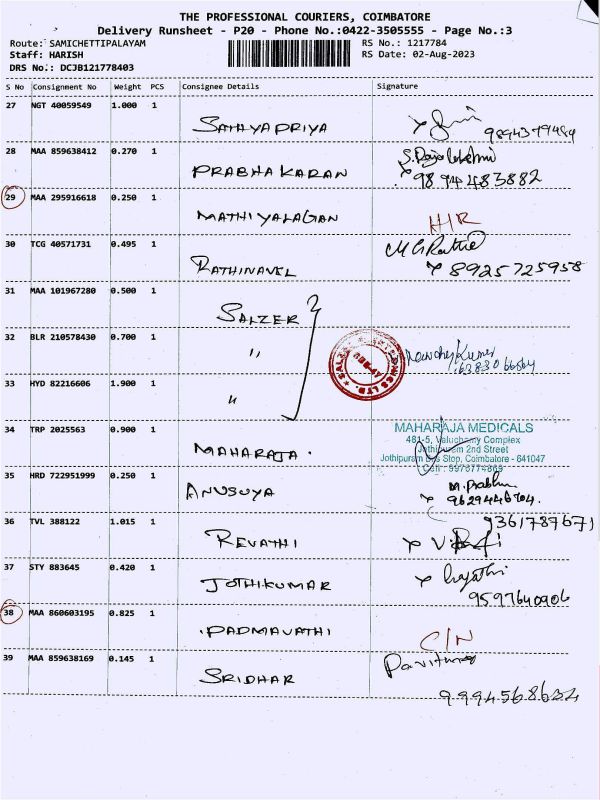 THE PROFESSIONAL COURIERS, COIMBATORE
Delivery Runsheet - P20 - Phone No.:0422-3505555 - Page No.:3
Route: SAMICHETTIPALAYAM RS No.: 1217784
Staff: HARISH RS Date: 02-Aug-2023
DRS No.: DCJB121778403
S No Consignment No Weight PCS Consignee Details Signature
27 NGT 40059549 1.000 1
SATHYAPRIYA
9894379484
28 MAA 859638412 0.270 1
PRABHAKARAN 9894483882
29 MAA 295916618 0.250 1
MATHIYALAGAN H/R
30 TCG 40571731 0.495 1
RATHINAVEL 8925725958
31 MAA 101967280 0.500 1
SALZER
32 BLR 210578430 0.700 1
"
33 HYD 82216606 1.900 1
"
34 TRP 2025563 0.900 1 MAHARAJA MEDICALS
481-5, Valuchamy Complex
Jothipuram 2nd Street
MAHARAJA. Jothipuram Bus Stop, Coimbatore - 641047
35 HRD 722951999 0.250 1
ANUSUYA M. Prabhu
9629446704.
36 TVL 388122 1.015 1 9361787671
REVATHI
37 STY 883645 0.420 1
JOTHIKUMAR 9597640906
38 MAA 860603195 0.825 1
PADMAVATHI C/N
39 MAA 859638169 0.145 1
SRIDHAR
9994568632